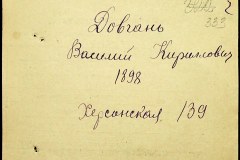 2
333
Довгань
Василий Кирилович
1898
Херсонская 139